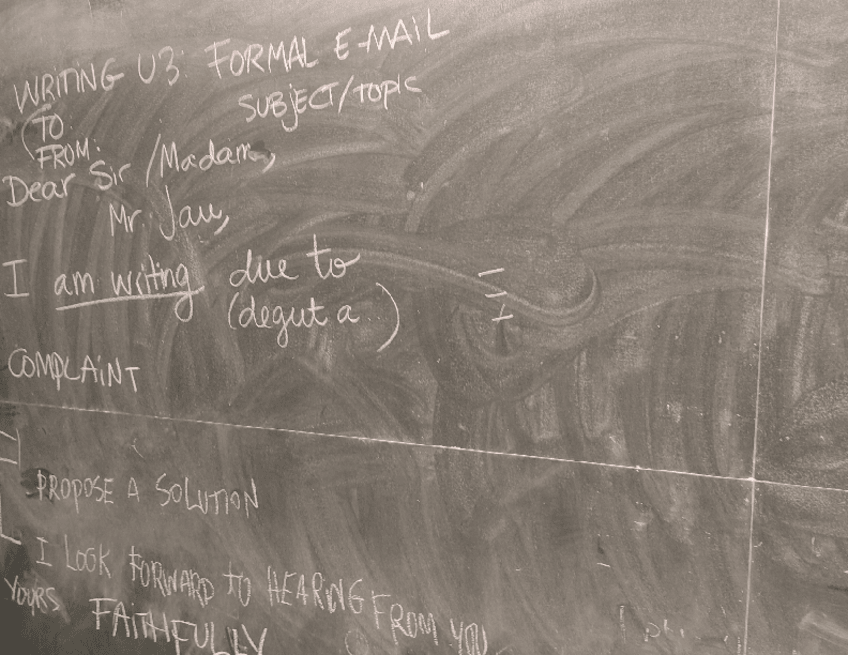 WRITING U3: FORMAL E-MAIL
SUBJECT/TOPIC
(TO
FROM:
Dear Sir /Madam,
Mr. Jau,
I am writing due to
(degut a..)
COMPLAINT
PROPOSE A SOLUTION
I LOOK FORWARD TO HEARING FROM YOU
YOURS FAITHFULLY